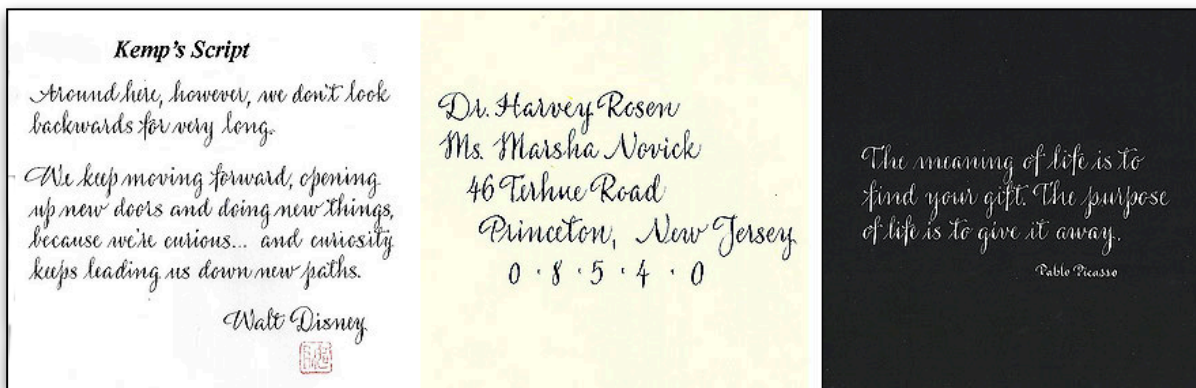 Kemp's Script
Around here, however, we don't look
backwards for very long.
We keep moving forward, opening
up new doors and doing new things,
because we're curious... and curiosity
keeps leading us down new paths.
Walt Disney
Dr. Harvey Rosen
Ms. Marsha Novick
46 Terhue Road
Princeton, New Jersey
0 · 8 · 5 · 4 · 0
The meaning of life is to
find your gift. The purpose
of life is to give it away.
Pablo Picasso